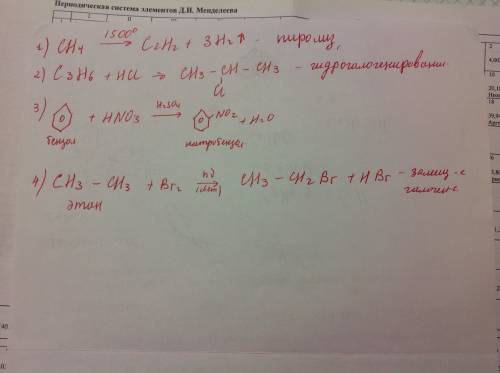 Периодическая система элементов Д.И. Менделеева
1) CH4 1500° → C2H2 + 3H2↑ - пиролиз,
2) C3H6 + HCl → CH3 - CH - CH3 - гидрогалогенирование
Cl
3) + HNO3 H2SO4 → NO2 + H2O
бензол нитробензол
4) CH3 - CH3 + Br2 hν → CH3 - CH2Br + HBr - замещ-е
этан галоген-е